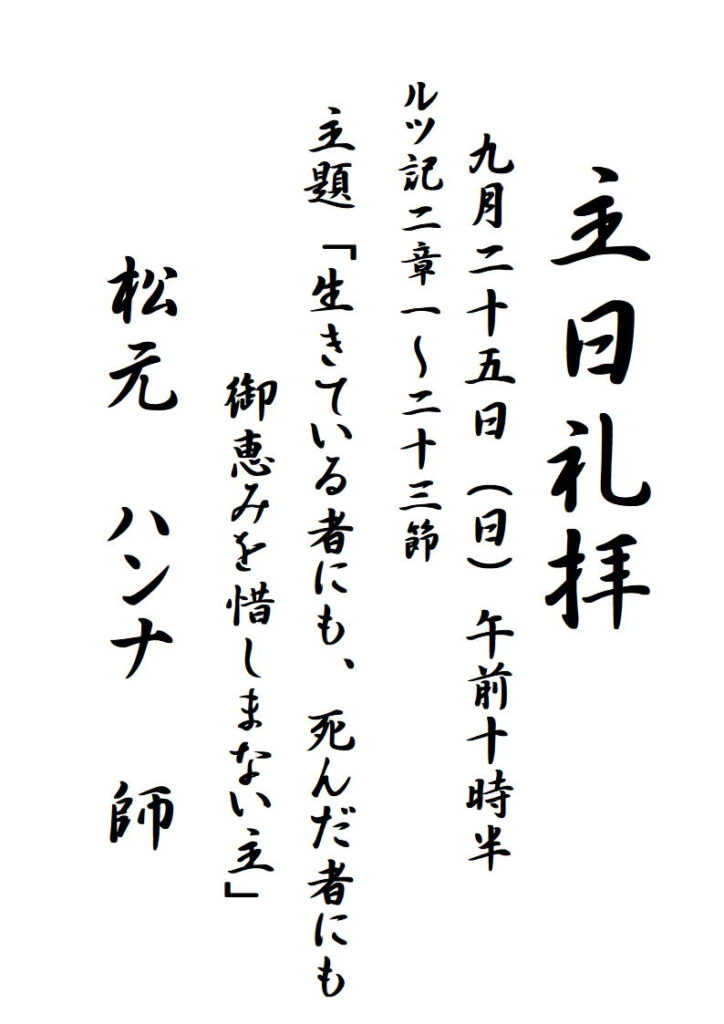 主日礼拝
九月二十五日（日） 午前十時半
ルツ記二章一～二十三節
主題「生きている者にも、死んだ者にも
御恵みを惜しまない主」
松元 ハンナ 師